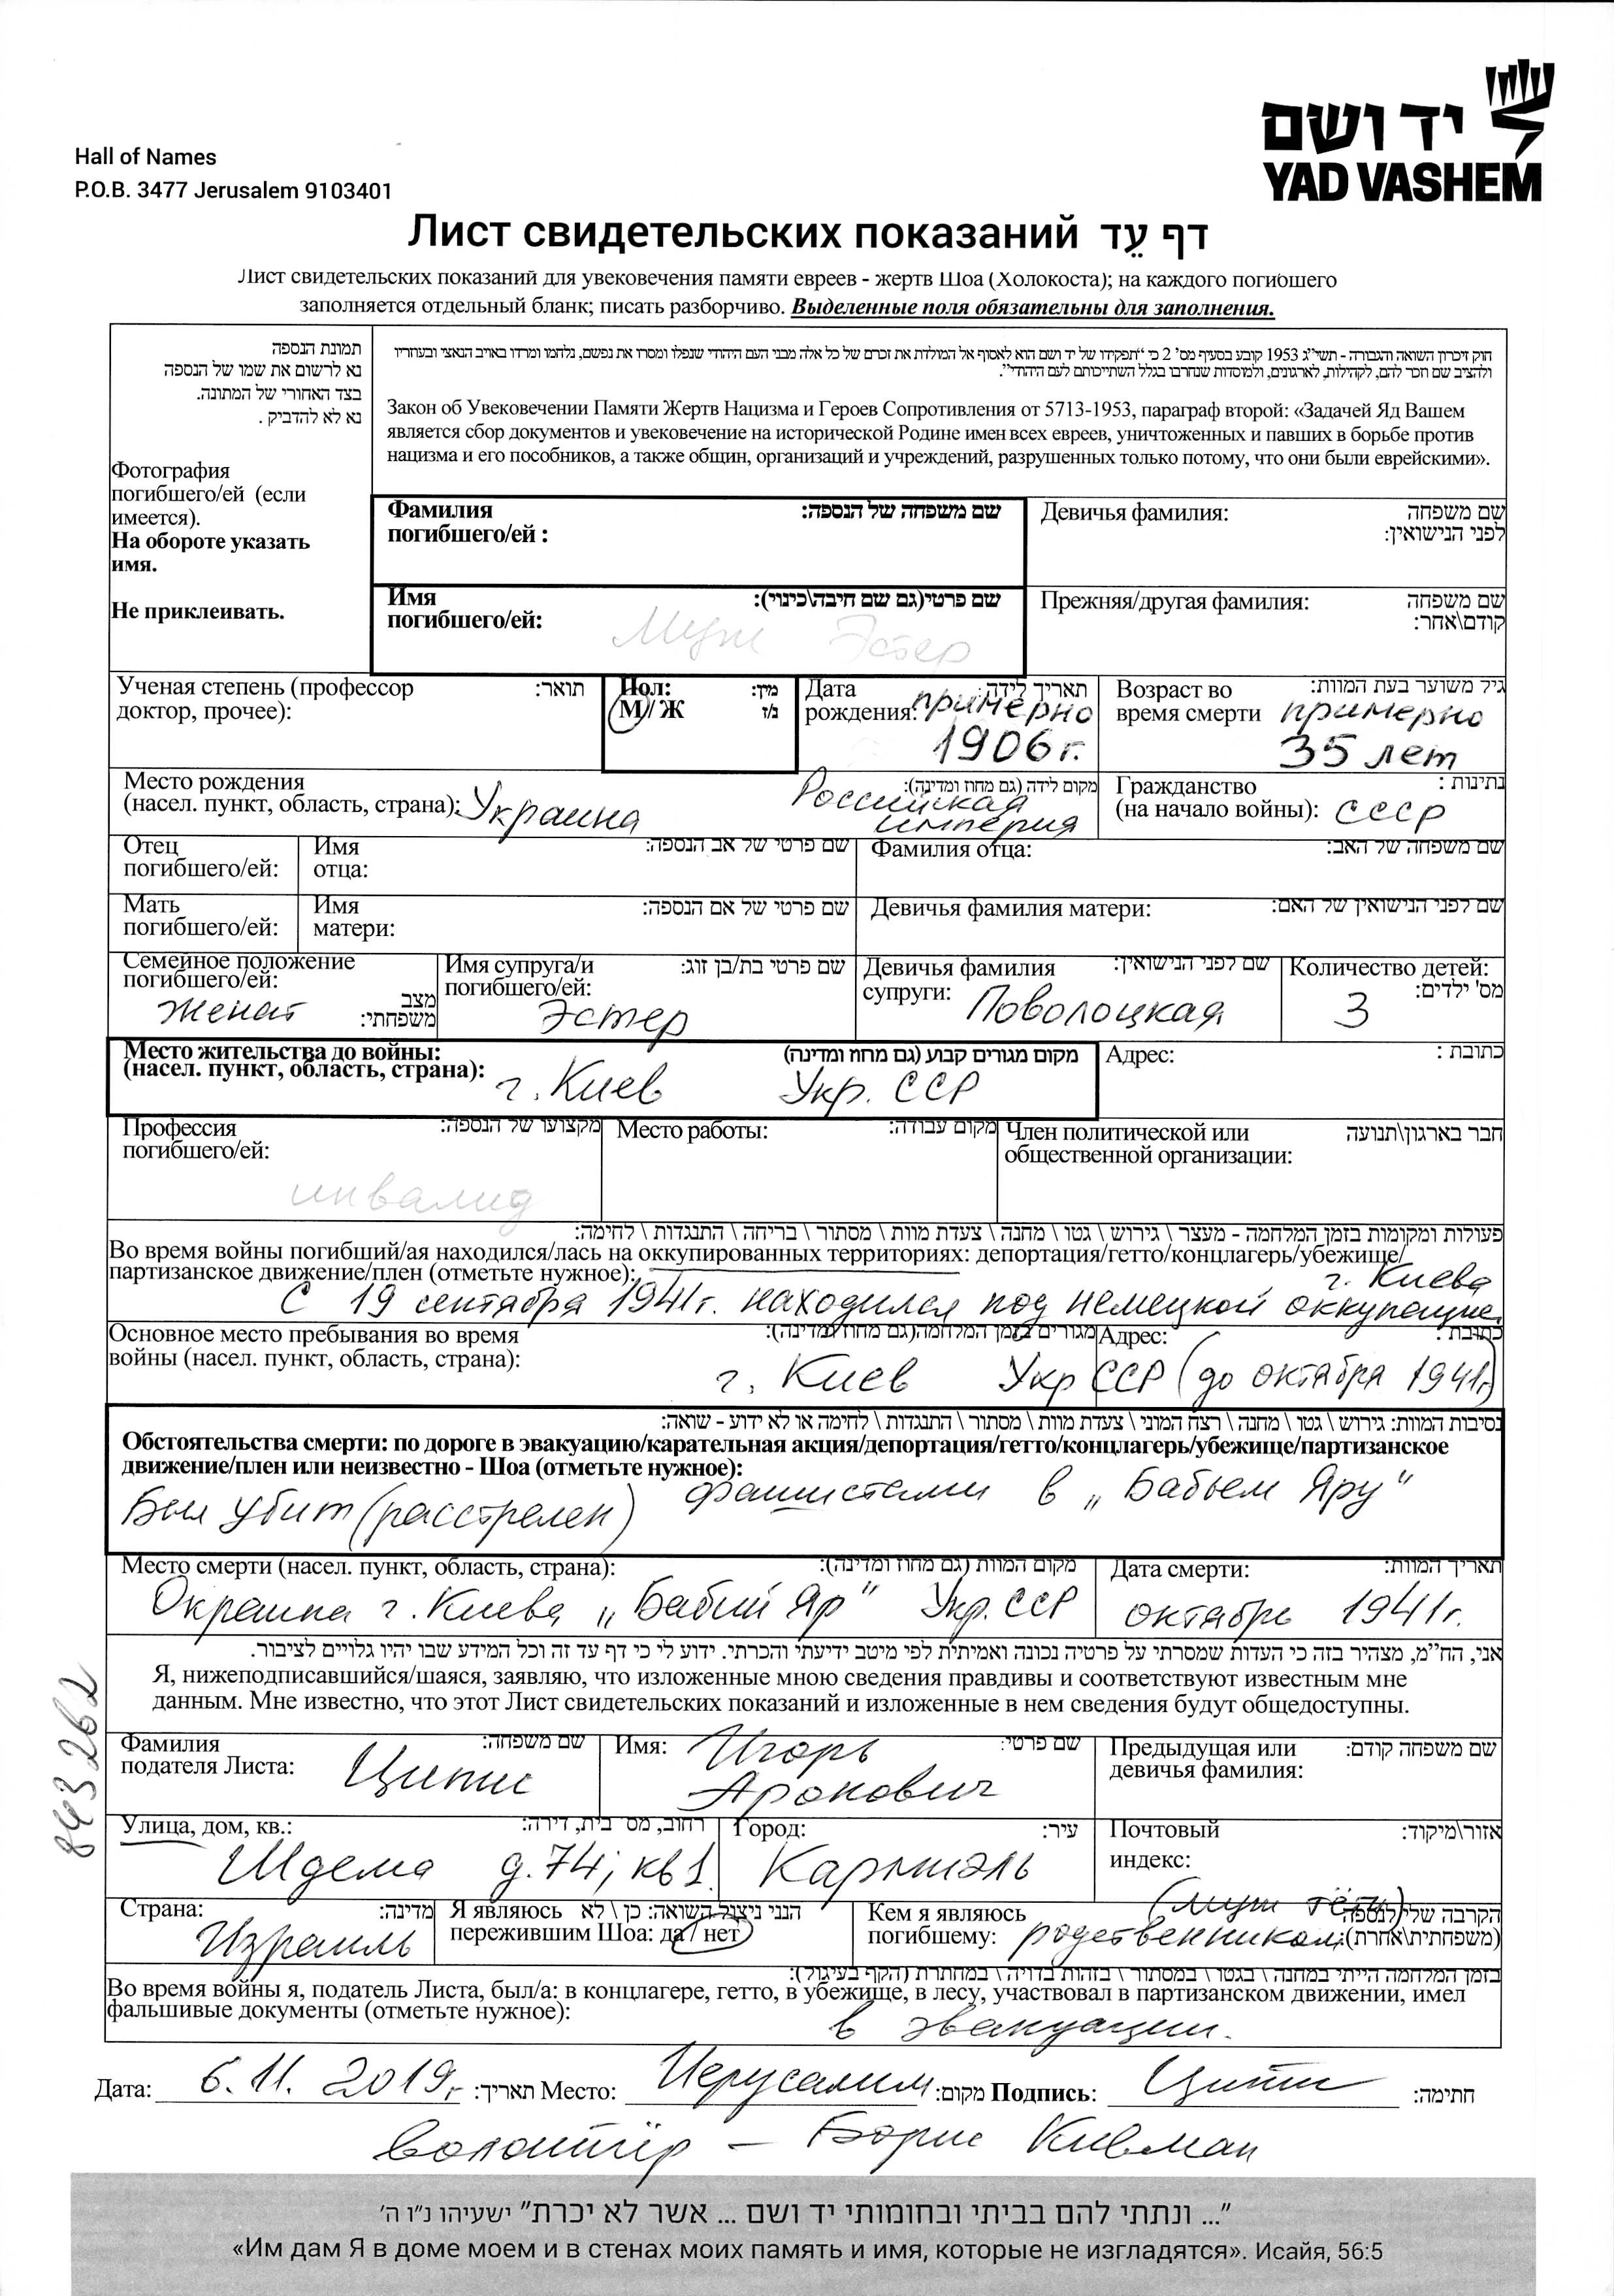 Hall of Names
P.O.B. 3477 Jerusalem 9103401
יד ושם
YAD VASHEM
Лист свидетельских показаний דף עֵד
Лист свидетельских показаний для увековечения памяти евреев - жертв Шоа (Холокоста); на каждого погибшего
заполняется отдельный бланк; писать разборчиво. Выделенные поля обязательны для заполнения.
תמונת הנספה
נא לרשום את שמו של הנספה
בצד האחורי של המתונה.
נא לא להדביק .
Фотография
погибшего/ей (если
имеется).
На обороте указать
имя.
Не приклеивать.
חוק זיכרון השואה והגבורה - תשי"ג 1953 קובע בסעיף מס' 2 כי "תפקידו של יד ושם הוא לאסוף אל המולדת את זכרם של כל אלה מבני העם היהודי שנפלו ומסרו את נפשם, נלחמו ומרדו באויב הנאצי ובעוזריו
ולהציב שם וזכר להם, לקהילות, לארגונים, ולמוסדות שנחרבו בגלל השתייכותם לעם היהודי".
Закон об Увековечении Памяти Жертв Нацизма и Героев Сопротивления от 5713-1953, параграф второй: «Задачей Яд Вашем
является сбор документов и увековечение на исторической Родине имен всех евреев, уничтоженных и павших в борьбе против
нацизма и его пособников, а также общин, организаций и учреждений, разрушенных только потому, что они были еврейскими».
Фамилия שם משפחה של הנספה:
погибшего/ей :
Девичья фамилия: שם משפחה
לפני הנישואין:
Имя שם פרטי(גם שם חיבה\כינוי):
погибшего/ей: Муж Эстер
Прежняя/другая фамилия: שם משפחה
קודם\אחר:
Ученая степень (профессор תואר:
доктор, прочее):
Пол: מין:
М / Ж ז/נ
Дата תאריך לידה:
рождения: примерно
1906 г.
Возраст во גיל משוער בעת המוות:
время смерти примерно
35 лет
Место рождения מקום לידה (גם מחוז ומדינה):
(насел. пункт, область, страна): Украина Российская
империя
Гражданство נתינות :
(на начало войны): СССР
Отец
погибшего/ей:
Имя שם פרטי של אב הנספה:
отца:
Фамилия отца: שם משפחה של האב:
Мать
погибшего/ей:
Имя שם פרטי של אם הנספה:
матери:
Девичья фамилия матери: שם לפני הנישואין של האם:
Семейное положение
погибшего/ей: מצב
женат משפחתי:
Имя супруга/и שם פרטי בת/בן זוג:
погибшего/ей:
Эстер
Девичья фамилия שם לפני הנישואין:
супруги: Поволоцкая
Количество детей:
מס' ילדים:
3
Место жительства до войны: מקום מגורים קבוע (גם מחוז ומדינה)
(насел. пункт, область, страна): г. Киев Укр. ССР
Адрес: כתובת :
Профессия מקצועו של הנספה:
погибшего/ей:
инвалид
Место работы: מקום עבודה:
Член политической или חבר בארגון\תנועה
общественной организации:
פעולות ומקומות בזמן המלחמה - מעצר \ גירוש \ גטו \ מחנה \ צעדת מוות \ מסתור \ בריחה \ התנגדות \ לחימה:
Во время войны погибший/ая находился/лась на оккупированных территориях: депортация/гетто/концлагерь/убежище/
партизанское движение/плен (отметьте нужное): г. Киева
С 19 сентября 1941г. находился под немецкой оккупацие
Основное место пребывания во время מגורים בזמן המלחמה(גם מחוז ומדינה):
войны (насел. пункт, область, страна):
Адрес: כתובת :
г. Киев Укр ССР (до октября 1941г)
נסיבות המוות: גירוש \ גטו \ מחנה \ רצח המוני \ צעדת מוות \ מסתור \ התנגדות \ לחימה או לא ידוע - שואה:
Обстоятельства смерти: по дороге в эвакуацию/карательная акция/депортация/гетто/концлагерь/убежище/партизанское
движение/плен или неизвестно - Шоа (отметьте нужное):
Был убит (расстрелен) фашистами в „Бабьем Яру"
Место смерти (насел. пункт, область, страна): מקום המוות (גם מחוז ומדינה):
Окраина г. Киева „Бабий Яр" Укр. ССР
Дата смерти: תאריך המוות:
октябрь 1941г.
אני, הח"מ, מצהיר בזה כי העדות שמסרתי על פרטיה נכונה ואמיתית לפי מיטב ידיעתי והכרתי. ידוע לי כי דף עד זה וכל המידע שבו יהיו גלויים לציבור.
Я, нижеподписавшийся/шаяся, заявляю, что изложенные мною сведения правдивы и соответствуют известным мне
данным. Мне известно, что этот Лист свидетельских показаний и изложенные в нем сведения будут общедоступны.
8443262
Фамилия שם משפחה:
подателя Листа: Ципис
Имя: Игорь שם פרטי:
Аронович
Предыдущая или שם משפחה קודם:
девичья фамилия:
Улица, дом, кв.: רחוב, מס בית, דירה:
Шдема д. 74; кв 1.
Город: עיר:
Кармиэль
Почтовый אזור\מיקוד:
индекс:
Страна: מדינה:
Израиль
Я являюсь הנני ניצול השואה: כן \ לא
пережившим Шоа: да / нет
(муж тёти)
Кем я являюсь הקרבה שלי לנספה
погибшему: родственником (משפחתית\אחרת):
בזמן המלחמה הייתי במחנה \ בגטו \ במסתור \ בזהות בדויה \ במחתרת (הקף בעיגול):
Во время войны я, податель Листа, был/а: в концлагере, гетто, в убежище, в лесу, участвовал в партизанском движении, имел
фальшивые документы (отметьте нужное): в эвакуации.
Дата: 6.11. 2019г. תאריך: Место: Иерусалим מקום: Подпись: Ципис חתימה:
Волонтёр – Борис Кивман
"... ונתתי להם בביתי ובחומותי יד ושם ... אשר לא יכרת" ישעיהו נ"ו ה'
«Им дам Я в доме моем и в стенах моих память и имя, которые не изгладятся». Исайя, 56:5